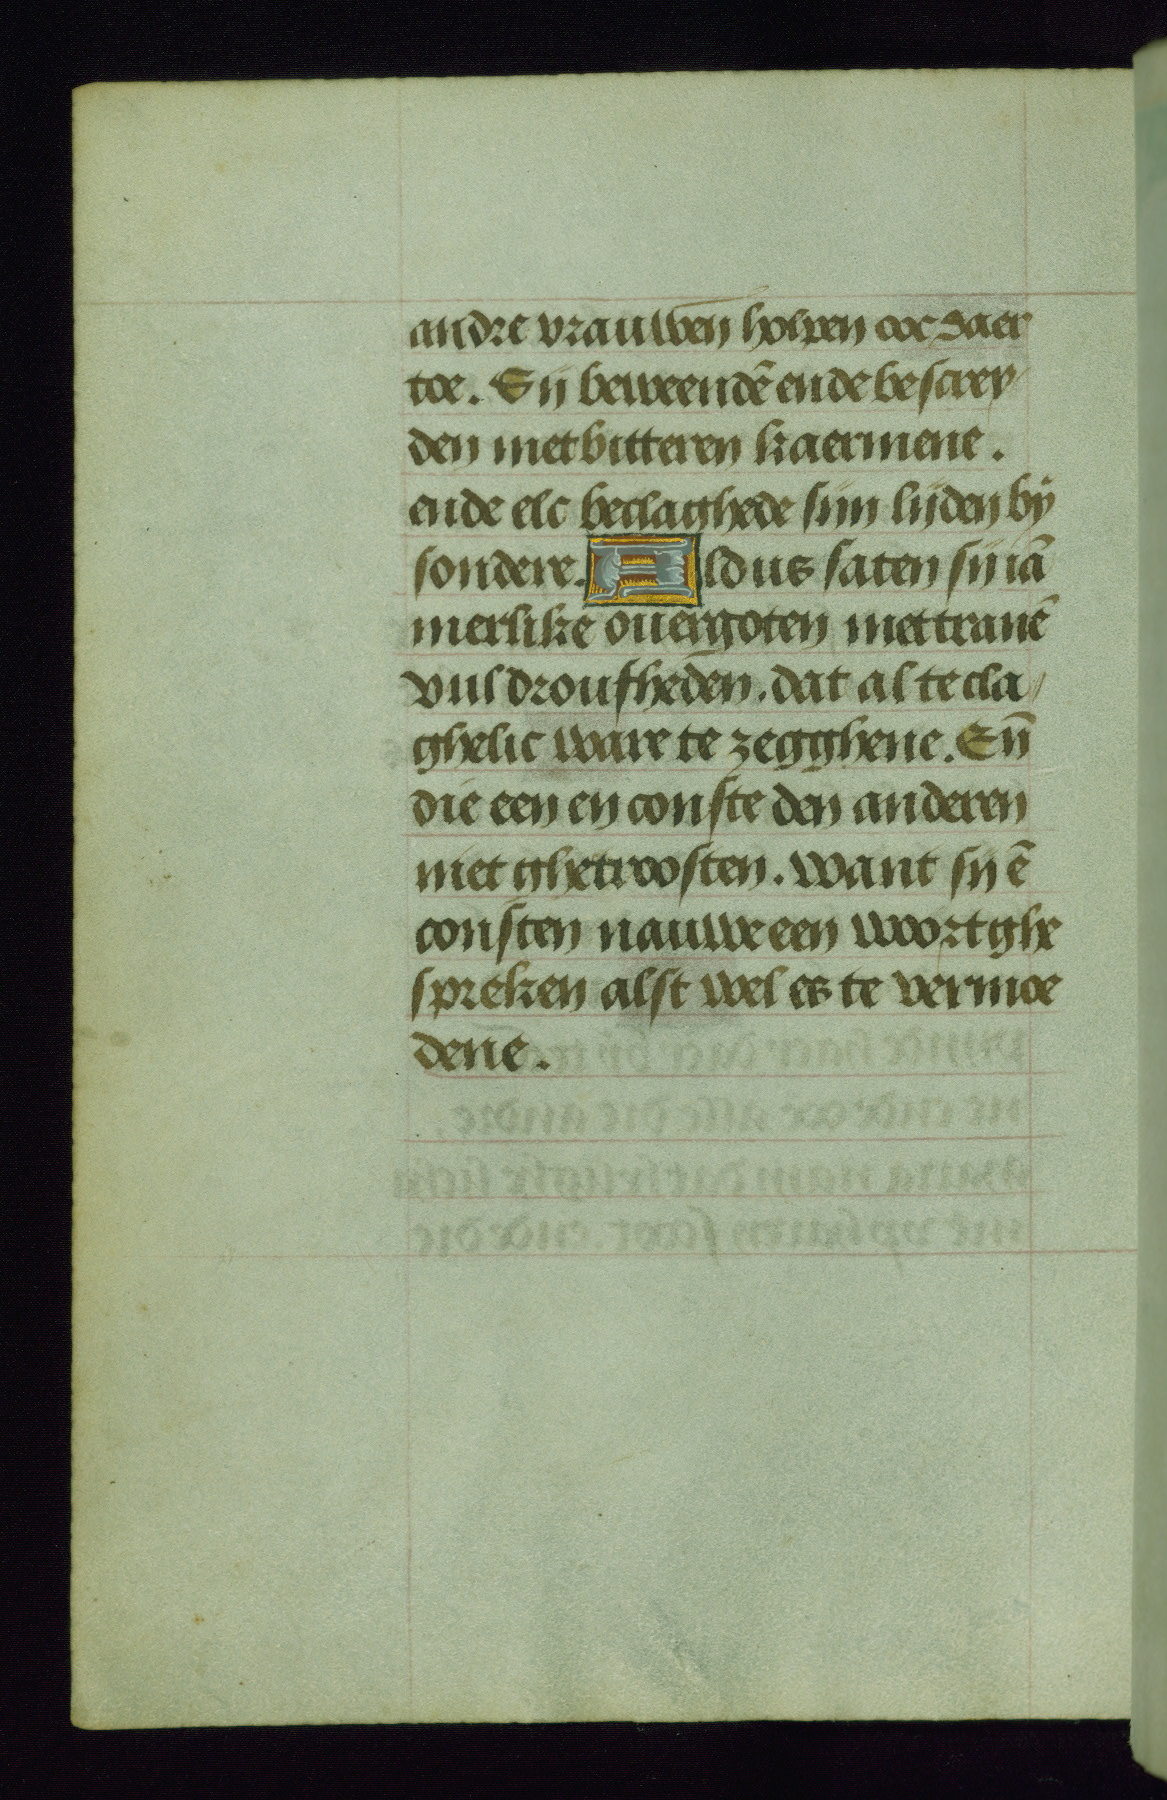 andre vrauwen holpen ooc daer
toe. Sij beweendē ende bescrey
den met bitteren kaermene.
ende elc beclaghede sijn lijden bij
sondere. Aldus saten sij iā
merlike ouergoten met tranē
vul droufheden. dat al te cla
ghelic ware te zegghene. En̄
die een en conste den anderen
niet ghetroosten. want sij ē
consten nauwe een woort ghe
spreken alst wel es te vermoe
dene.